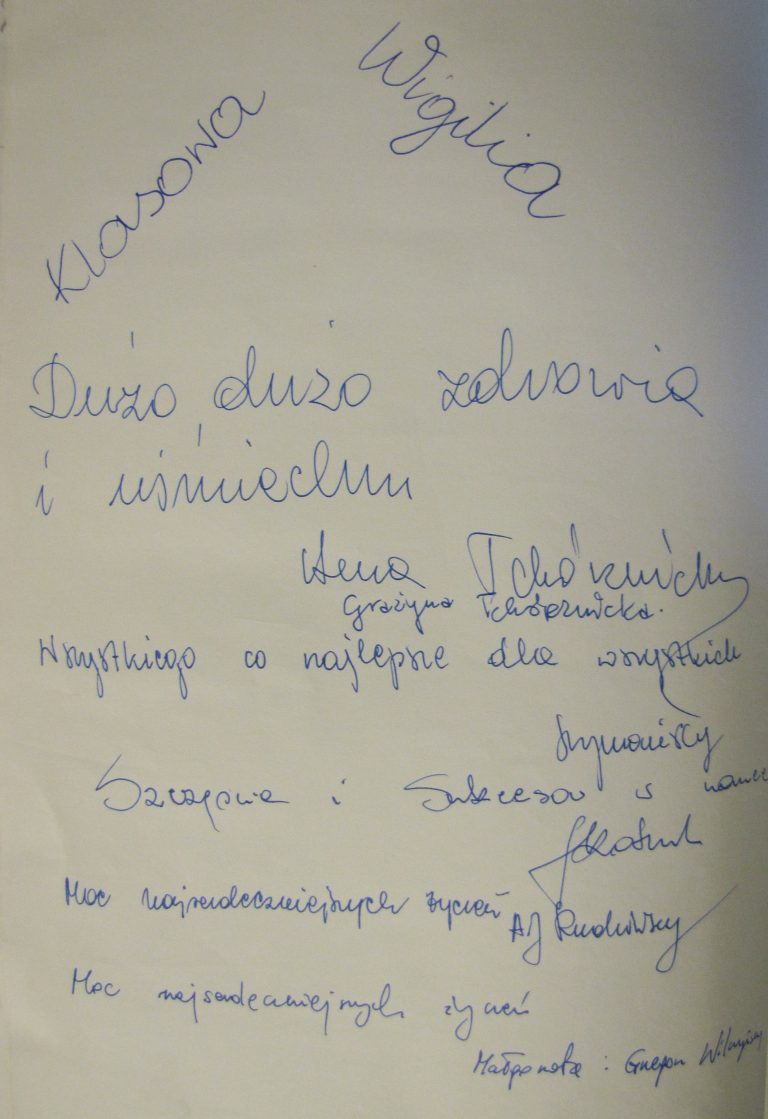 Klasowa Wigilia
Dużo, dużo zdrowia
i uśmiechu
Anna Tchórznicki
Grażyna Tchórznicka.
Wszystkiego co najlepsze dla wszystkich
Szymańscy
Szczęścia i Sukcesów w nauce
Moc najserdeczniejszych życzeń
AJ Rudowscy
Moc najserdeczniejszych życzeń
Małgorzata i Grzegorz